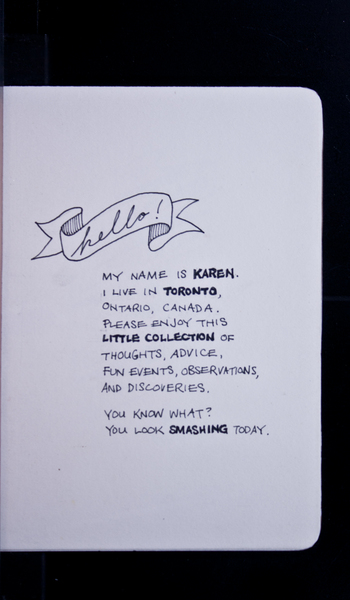 hello!
MY NAME IS KAREN.
I LIVE IN TORONTO,
ONTARIO, CANADA.
PLEASE ENJOY THIS
LITTLE COLLECTION OF
THOUGHTS, ADVICE,
FUN EVENTS, OBSERVATIONS,
AND DISCOVERIES.
YOU KNOW WHAT?
YOU LOOK SMASHING TODAY.